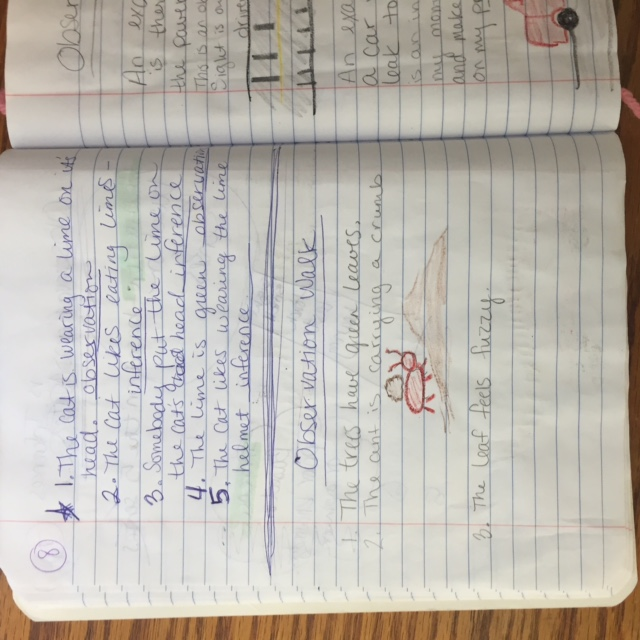 8
1. The cat is wearing a lime on it
head. observation
2. The cat likes eating limes -
inference
3. Somebody put the lime on
the cats head inference
4. The lime is green observation
5. The cat likes wearing the lime
helmet inference
Observation Walk
1. The trees have green leaves.
2. The ant is carrying a crumb
3. The leaf feels fuzzy.
Obser
An
is
the
sight
An
a car
look to
is an
my mom
and make
on my